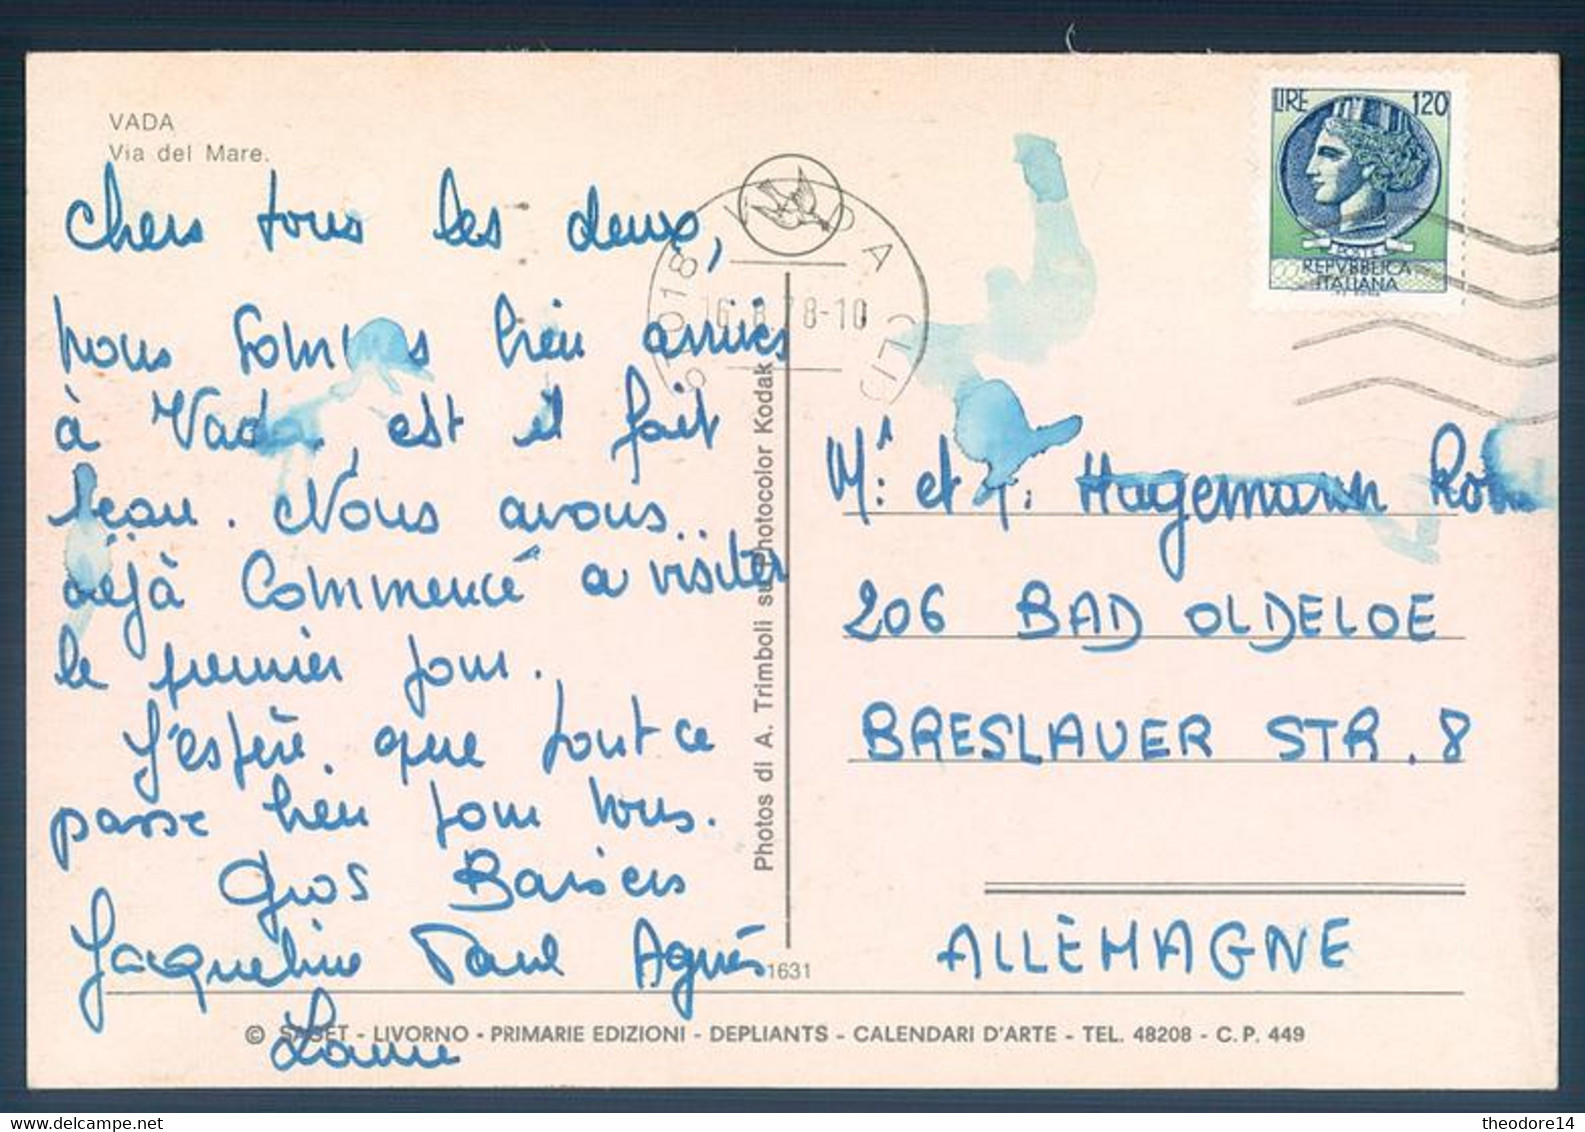 VADA
Via del Mare.
Chers tous les deux,
nous sommes bien arrivés
à Vada, est il fait
beau. Nous avons
déjà commencé a visiter
le premier jour.
J'espère que tout ce
passe bien pour vous.
Gros Baisers
Jacqueline Paul Agnès
Laure
57018 VADA (LI)
16. 8. 78-10
Photos di A. Trimboli su Photocolor Kodak
1631
LIRE 120
POSTE
REPVBBLICA
ITALIANA
Mr. et M. Hagemann
206 BAD OLDELOE
BRESLAUER STR. 8
ALLÈMAGNE
© SASET - LIVORNO - PRIMARIE EDIZIONI - DEPLIANTS - CALENDARI D'ARTE - TEL. 48208 - C.P. 449
theodore14